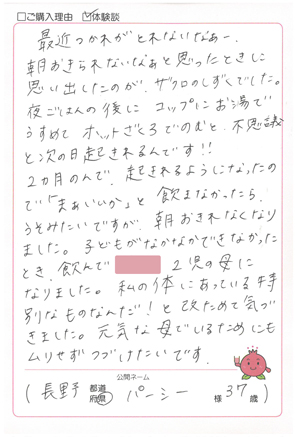 □ご購入理由 ☑体験談
最近つかれがとれないなあー、
朝おきられないなぁと思ったときに
思い出したのが、ザクロのしずくでした。
夜ごはんの後に コップにお湯で
うすめて ホットざくろでのむと、不思議
と次の日起きれるんです!!
2カ月のんで、起きれるようになったの
で「まぁいいか」と 飲まなかったら、
うそみたいですが、朝おきれなくなり
ました。子どもがなかなかできなかった
とき、飲んで 2児の母に
なりました。私の体にあっている特
別なものなんだ!と改ためて気づ
きました。元気な母でいるためにも
ムリせずつづけたいです。
公開ネーム
(長野 都道府県 パーシー 様 37歳)